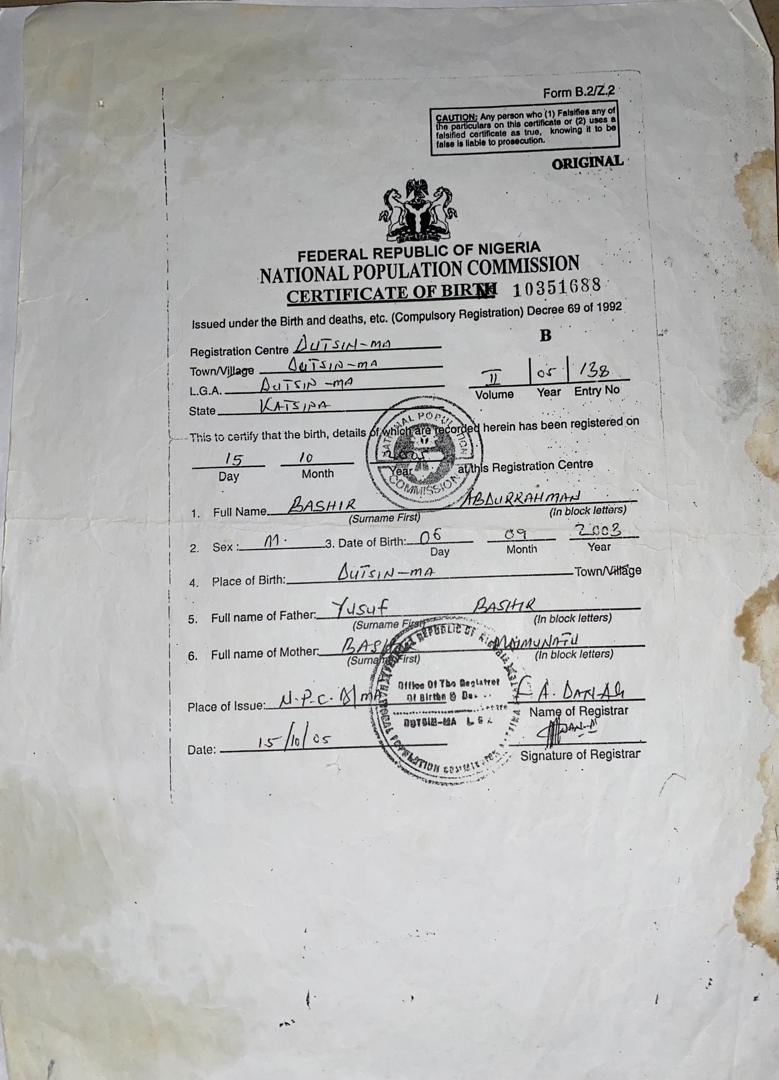 Form B.2/Z.2
CAUTION: Any person who (1) Falsifies any of
the particulars on this certificate or (2) uses a
falsified certificate as true, knowing it to be
false is liable to prosecution.
ORIGINAL
FEDERAL REPUBLIC OF NIGERIA
NATIONAL POPULATION COMMISSION
CERTIFICATE OF BIRTH 10351688
Issued under the Birth and deaths, etc. (Compulsory Registration) Decree 69 of 1992
B
Registration Centre DUTSIN-MA
Town/Village DUTSIN-MA
L.G.A. DUTSIN-MA
II 05 138
Volume Year Entry No
State KATSINA
NATIONAL POPULATION COMMISSION
This to certify that the birth, details of which are recorded herein has been registered on
15 10 2005
Day Month Year at this Registration Centre
1. Full Name BASHIR ABDURRAHMAN
(Surname First) (In block letters)
2. Sex: M. 3. Date of Birth: 06 09 2003
Day Month Year
4. Place of Birth: DUTSIN-MA Town/Village
5. Full name of Father: Yusuf BASHIR
(Surname First) (In block letters)
6. Full name of Mother: BASHIR MAIMUNATU
(Surname First) (In block letters)
Office Of The Registrar
Of Births &
DUTSIN-MA L G A
Place of Issue: N.P.C. D/MA
Name of Registrar
Date: 15/10/05
Signature of Registrar